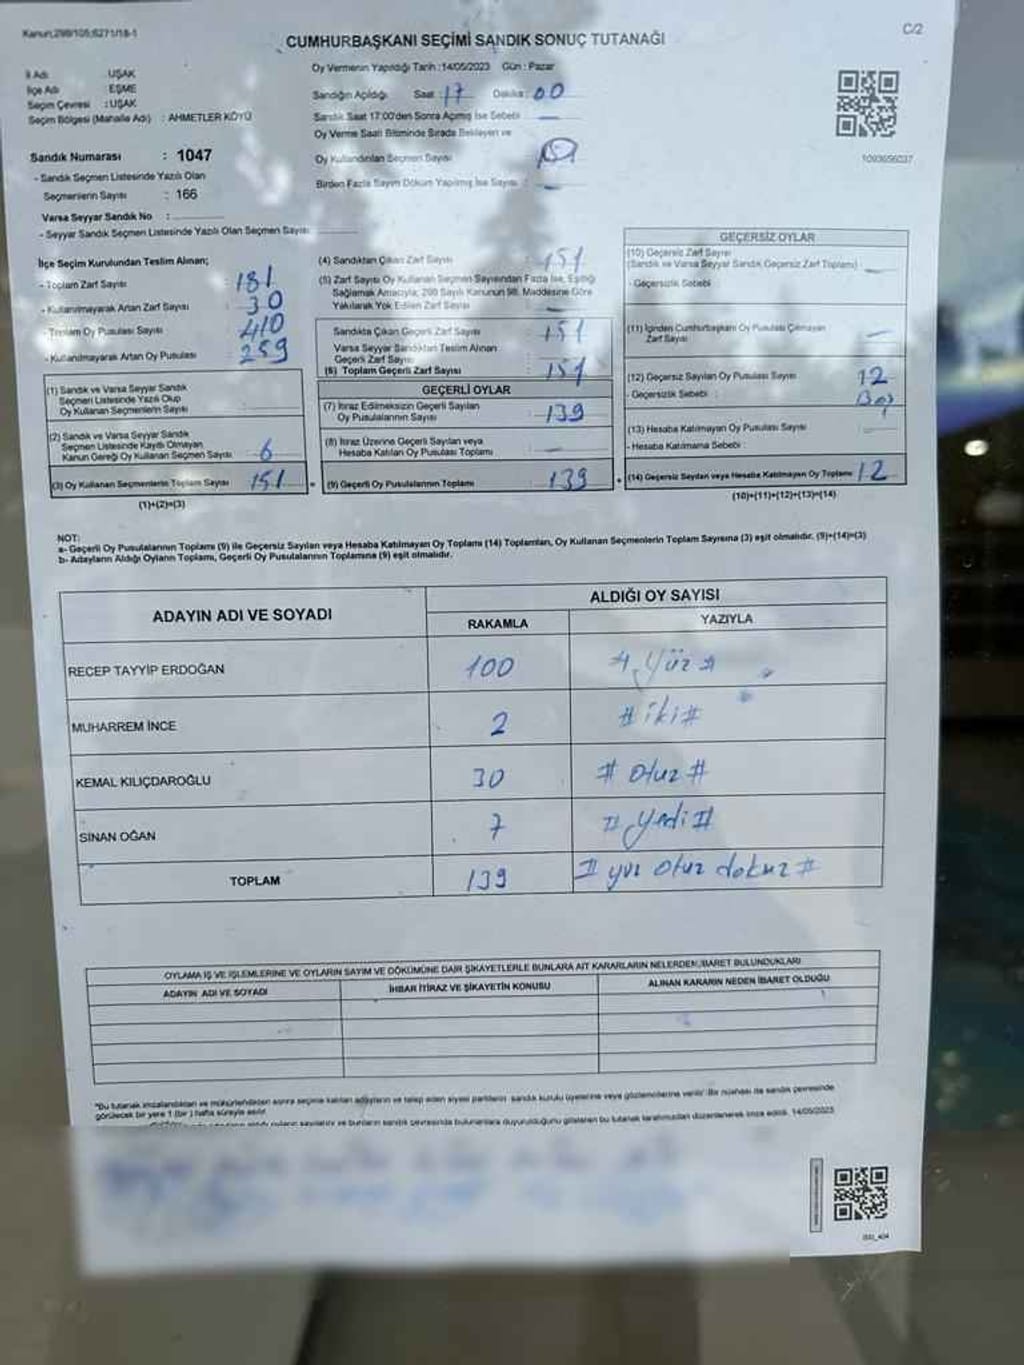 Kanun;298/105;6271/18-1
C/2
CUMHURBAŞKANI SEÇİMİ SANDIK SONUÇ TUTANAĞI
İl Adı : UŞAK
İlçe Adı : EŞME
Seçim Çevresi : UŞAK
Seçim Bölgesi (Mahalle Adı) : AHMETLER KÖYÜ
Oy Vermenin Yapıldığı Tarih : 14/05/2023 Gün : Pazar
Sandığın Açıldığı Saat : 17 Dakika : 00
Sandık Saat 17:00'den Sonra Açımış İse Sebebi : —
Oy Verme Saati Bitiminde Sırada Bekleyen ve
Oy Kullandırılan Seçmen Sayısı
Birden Fazla Sayım Döküm Yapılmış İse Sayısı : —
1093656037
Sandık Numarası : 1047
- Sandık Seçmen Listesinde Yazılı Olan
Seçmenlerin Sayısı : 166
Varsa Seyyar Sandık No :
- Seyyar Sandık Seçmen Listesinde Yazılı Olan Seçmen Sayısı
İlçe Seçim Kurulundan Teslim Alınan;
- Toplam Zarf Sayısı : 181
- Kullanılmayarak Artan Zarf Sayısı : 30
- Toplam Oy Pusulası Sayısı : 410
- Kullanılmayarak Artan Oy Pusulası : 259
(1) Sandık ve Varsa Seyyar Sandık
Seçmen Listesinde Yazılı Olup
Oy Kullanan Seçmenlerin Sayısı :
(2) Sandık ve Varsa Seyyar Sandık
Seçmen Listesinde Kayıtlı Olmayan
Kanun Gereği Oy Kullanan Seçmen Sayısı : 6
(3) Oy Kullanan Seçmenlerin Toplam Sayısı : 151
(1)+(2)=(3)
(4) Sandıktan Çıkan Zarf Sayısı : 151
(5) Zarf Sayısı Oy Kullanan Seçmen Sayısından Fazla İse, Eşitliği
Sağlamak Amacıyla; 298 Sayılı Kanunun 98. Maddesine Göre
Yakılarak Yok Edilen Zarf Sayısı : —
Sandıkta Çıkan Geçerli Zarf Sayısı : 151
Varsa Seyyar Sandıktan Teslim Alınan
Geçerli Zarf Sayısı :
(6) Toplam Geçerli Zarf Sayısı : 151
GEÇERLİ OYLAR
(7) İtiraz Edilmeksizin Geçerli Sayılan
Oy Pusulalarının Sayısı : 139
(8) İtiraz Üzerine Geçerli Sayılan veya
Hesaba Katılan Oy Pusulası Toplamı : —
(9) Geçerli Oy Pusulalarının Toplamı : 139
GEÇERSİZ OYLAR
(10) Geçersiz Zarf Sayısı
(Sandık ve Varsa Seyyar Sandık Geçersiz Zarf Toplamı) : —
- Geçersizlik Sebebi :
(11) İçinden Cumhurbaşkanı Oy Pusulası Çıkmayan
Zarf Sayısı : —
(12) Geçersiz Sayılan Oy Pusulası Sayısı : 12
- Geçersizlik Sebebi :
(13) Hesaba Katılmayan Oy Pusulası Sayısı :
- Hesaba Katılmama Sebebi :
(14) Geçersiz Sayılan veya Hesaba Katılmayan Oy Toplamı : 12
(10)+(11)+(12)+(13)=(14)
NOT:
a- Geçerli Oy Pusulalarının Toplamı (9) ile Geçersiz Sayılan veya Hesaba Katılmayan Oy Toplamı (14) Toplamları, Oy Kullanan Seçmenlerin Toplam Sayısına (3) eşit olmalıdır. (9)+(14)=(3)
b- Adayların Aldığı Oyların Toplamı, Geçerli Oy Pusulalarının Toplamına (9) eşit olmalıdır.
ADAYIN ADI VE SOYADI
ALDIĞI OY SAYISI
RAKAMLA YAZIYLA
RECEP TAYYİP ERDOĞAN 100 # Yüz #
MUHARREM İNCE 2 # iki #
KEMAL KILIÇDAROĞLU 30 # Otuz #
SİNAN OĞAN 7 # yedi #
TOPLAM 139 # yüz otuz dokuz #
OYLAMA İŞ VE İŞLEMLERİNE VE OYLARIN SAYIM VE DÖKÜMÜNE DAİR ŞİKAYETLERLE BUNLARA AİT KARARLARIN NELERDEN İBARET BULUNDUKLARI
ADAYIN ADI VE SOYADI İHBAR İTİRAZ VE ŞİKAYETİN KONUSU ALINAN KARARIN NEDEN İBARET OLDUĞU
"Bu tutanak imzalandıktan ve mühürlendikten sonra seçime katılan adayların ve talep eden siyasi partilerin sandık kurulu üyelerine veya gözlemcilerine verilir. Bir nüshası da sandık çevresinde
görülecek bir yere 1 (bir) hafta süreyle asılır.
bulunanlara duyurulduğunu gösteren bu tutanak tarafımızdan düzenlenerek imza edildi. 14/05/2023